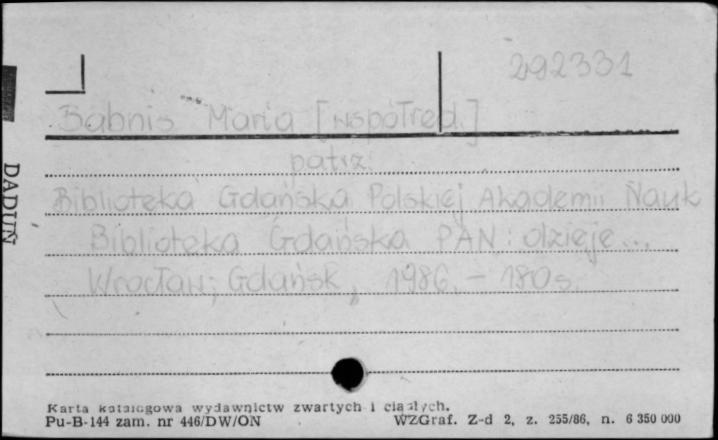 292331
Babnis Maria [współred.]
patrz
Biblioteka Gdańska Polskiej Akademii Nauk
Biblioteka Gdańska PAN : dzieje...
Wrocław; Gdańsk, 1986. – 180 s.
DADUŃ
Karta katalogowa wydawnictw zwartych i ciągłych.
Pu-B-144 zam. nr 446/DW/ON WZGraf. Z-d 2, z. 255/86, n. 6 350 000